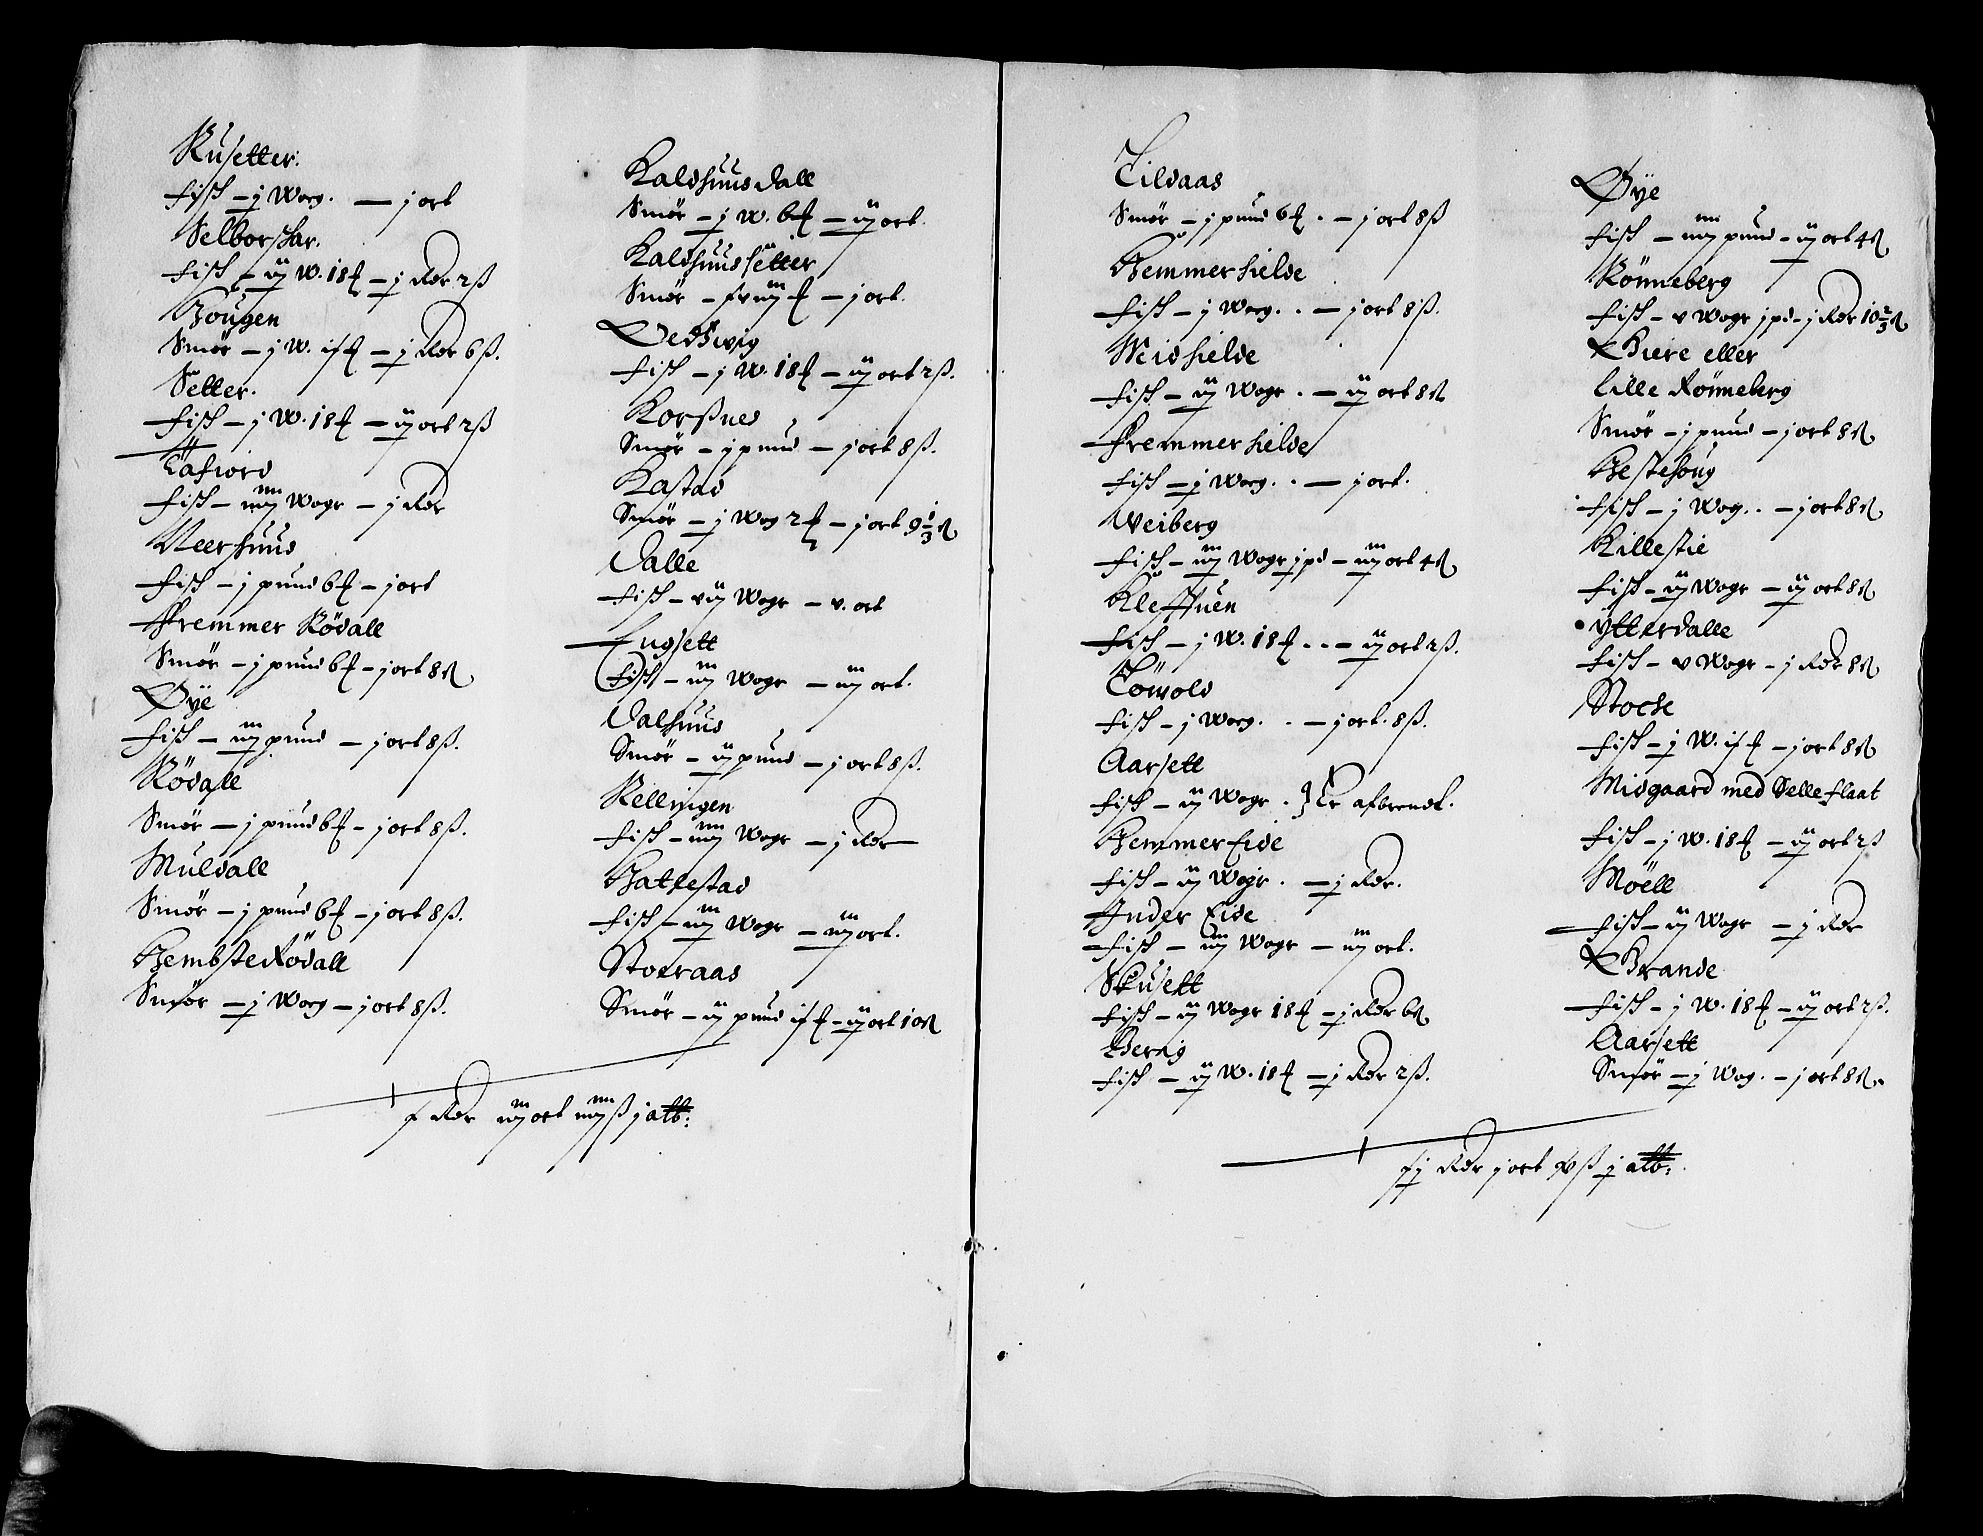 Rusetter.
Fisch – j Wog. — j ort
Selborschar.
Fisch – ij W. 18 ℔ – j Rdr 2 ß
Jougen
Smör – j W. if ℔ – j Rdr 6 ß.
Setter.
Fisch – j W. 18 ℔ – ij ort 2 ß
Tafiord
Fisch – iiij Wogr – j Rdr
Meerhuus
Fisch – j pund 6 ℔ – j ort
Fremmer Rödall
Smör – j pund 6 ℔ – j ort 8 ß
Øÿe
Fisch – iiij pund – j ort 8 ß.
Rödall
Smör – j pund 6 ℔ – j ort 8 ß.
Muldall
Smör – j pund 6 ℔ – j ort 8 ß.
Hembste Rödall
Smör – j Wog – j ort 8 ß.
Kaldhuusdall
Smör – j W. 6 ℔ – ij ort.
Kaldhuussetter
Smör – fviij ℔ – j ort.
Oedswig
Fisch – j W. 18 ℔ – ij ort 2 ß.
Korßnes
Smör – j pund – j ort 8 ß.
Kastad
Smör – j Wog 2 ℔ – j ort 9 1/3 ß
Dalle
Fisch – vij Wogr – v. ort
Engsett
Fisch – iij Wogr – iij ort.
Dalhuus
Smör – ij pund – j ort 8 ß.
Rellingen
Fisch – iiij Wogr – j Rdr
Hatlestad
Fisch – iij Wogr – iij ort.
Storaas
Smör – ij pund if ℔ – ij ort 10 ß
f Rdr iij ort iiij ß j alb:
Lildaas
Smör – j pund 6 ℔. – j ort 8 ß
Hemmerhielde
Fisch – j Wog. . – j ort 8 ß.
Meidhielde
Fisch – ij Wogr . – ij ort 8 ß
Fremmerhielde
Fisch – j Wog. . – j ort.
Weiberg
Fisch – iij Wogr j pd – iij ort 4 ß
Kleffuen
Fisch – j W. 18 ℔ . . – ij ort 2 ß.
Törvold
Fisch – j Wog. . – j ort. 8 ß.
Aarsett
Fisch – ij Wogr . } Er afbrendt.
Hemmer Eide
Fisch – ij Wogr . – j Rdr.
Inder Eide
Fisch – iij Wogr – iij ort.
Skusett
Fisch – ij Wogr 18 ℔ – j Rdr 6 ß
Berrig
Fisch – ij W. 18 ℔ – j Rdr 2 ß.
Øÿe
Fisch – iiij pund – ij ort 4 ß
Rönneberg
Fisch – v Wogr j pd – j Rdr 10 2/3 ß
Biere eller
Lille Rönneberg
Smör – j pund – j ort 8 ß
Hestehoug
Fisch – j Wog. . – j ort 8 ß
Killestie
Fisch – ij Wogr – ij ort 8 ß
Ytterdalle
Fisch – v Wogr – j Rdr 8 ß
Stoche
Fisch – j W. if ℔ – j ort 8 ß
Midgaard med Selleflaat
Fisch – j W. 18 ℔ – ij ort 2 ß
Möell
Fisch – ij Wogr – j Rdr
Brande
Fisch – j W. 18 ℔ – ij ort 2 ß.
Aarsett
Smör – j Wog. – j ort 8 ß.
fj Rdr j ort xv ß j alb: